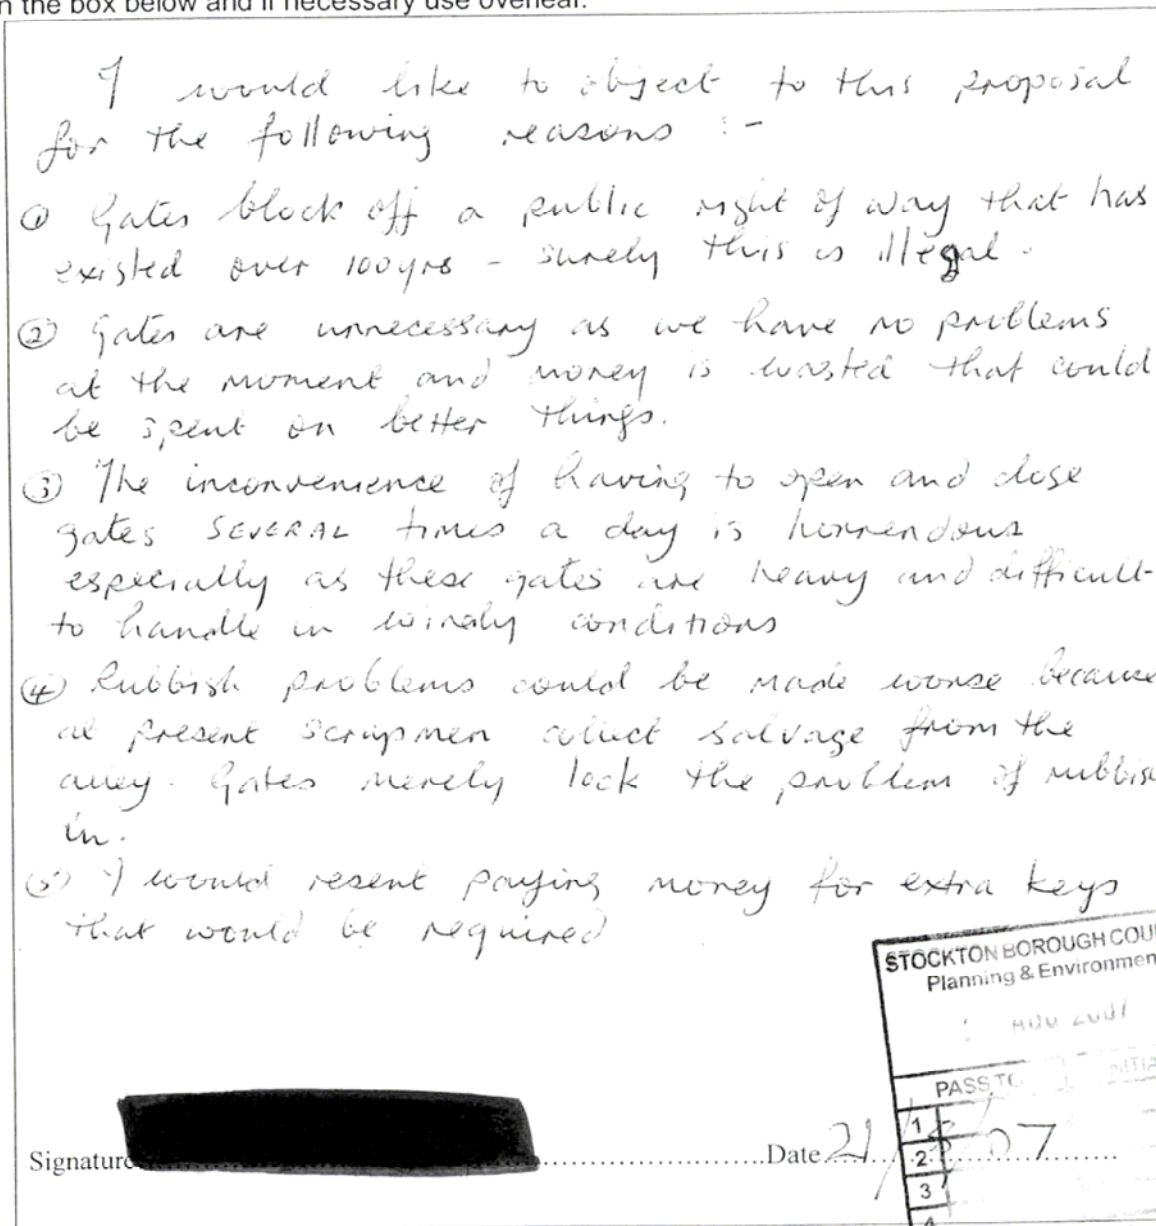 n the box below and if necessary use overleaf.
I would like to object to this proposal
for the following reasons :-
① Gates block off a public right of way that has
existed over 100yrs - surely this is illegal.
② Gates are unnecessary as we have no problems
at the moment and money is wasted that could
be spent on better things.
③ The inconvenience of having to open and close
gates SEVERAL times a day is horrendous
especially as these gates are heavy and difficult
to handle in windy conditions
④ Rubbish problems could be made worse because
at present scrapmen collect salvage from the
alley. Gates merely lock the problem of rubbish
in.
⑤ I would resent paying money for extra keys
that would be required
STOCKTON BOROUGH COU
Planning & Environmen
PASS TO
1
2
3
4
Signature
Date 21/8/07